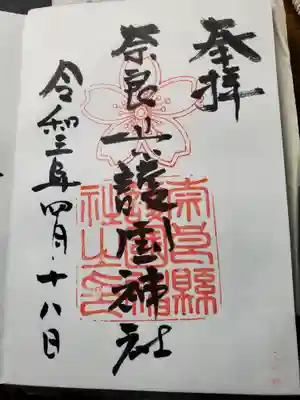 奉拝
奈良県護國神社
令和三年四月十八日
奈良縣
護國神
社之印